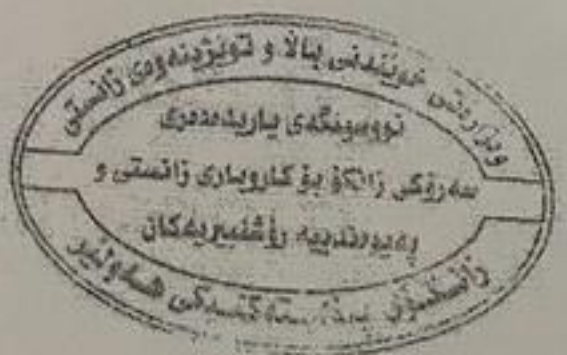 وەزارەتی خوێندنی باڵا و توێژینەوەی زانستی
نووسینگەی یاریدەدەری
سەرۆکی زانکۆ بۆ کاروباری زانستی و
پەیوەندییە رۆشنبیریەکان
زانکۆی هەولێر